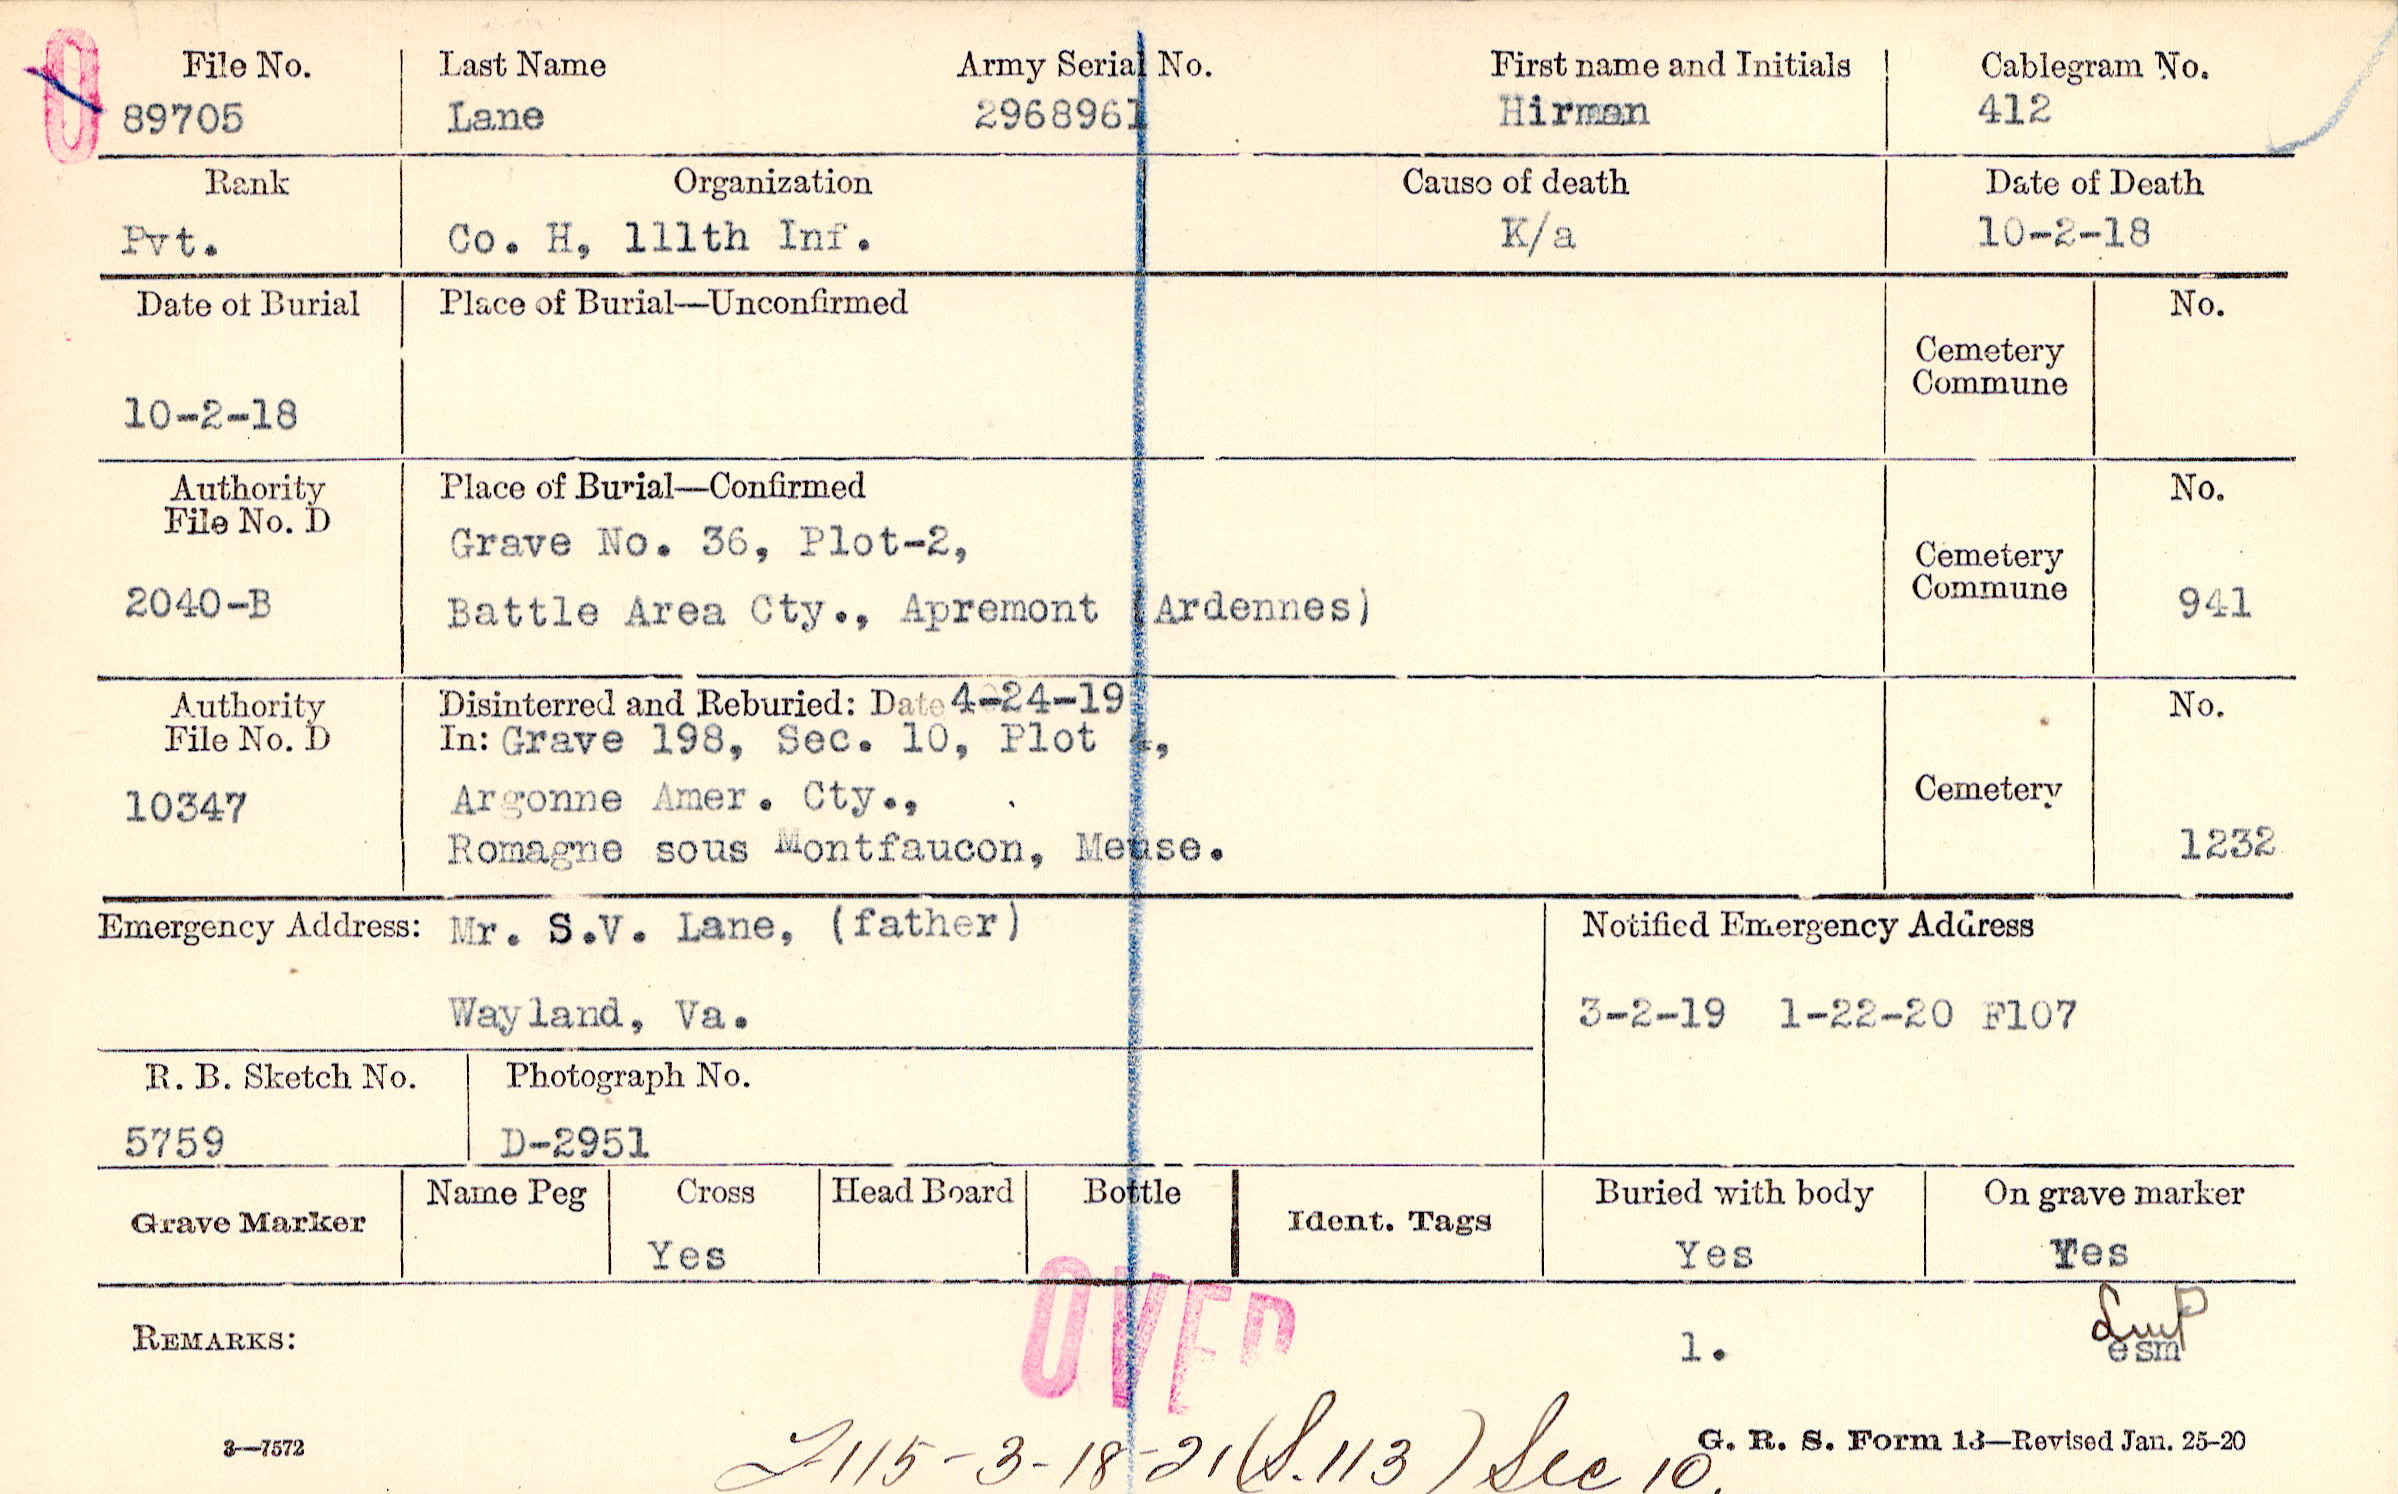 File No. Last Name Army Serial No. First name and Initials Cablegram No.
89705 Lane 2968961 Hirman 412
Rank Organization Cause of death Date of Death
Pvt. Co. H, 111th Inf. K/a 10-2-18
Date of Burial Place of Burial—Unconfirmed No.
Cemetery
Commune
10-2-18
Authority Place of Burial—Confirmed No.
File No. D
Grave No. 36, Plot-2,
Cemetery
Commune
2040-B Battle Area Cty., Apremont (Ardennes) 941
Authority Disinterred and Reburied: Date 4-24-19 No.
File No. D In: Grave 198, Sec. 10, Plot 4,
10347 Argonne Amer. Cty., Cemetery
Romagne sous Montfaucon, Meuse. 1232
Emergency Address: Mr. S.V. Lane, (father) Notified Emergency Address
Wayland, Va. 3-2-19 1-22-20 F107
R. B. Sketch No. Photograph No.
5759 D-2951
Grave Marker Name Peg Cross Head Board Bottle Ident. Tags Buried with body On grave marker
Yes Yes Yes
OVER
REMARKS: 1. esm
3—7572 G. R. S. Form 13—Revised Jan. 25-20
115-3-18-21 (S.113) Sec 10.